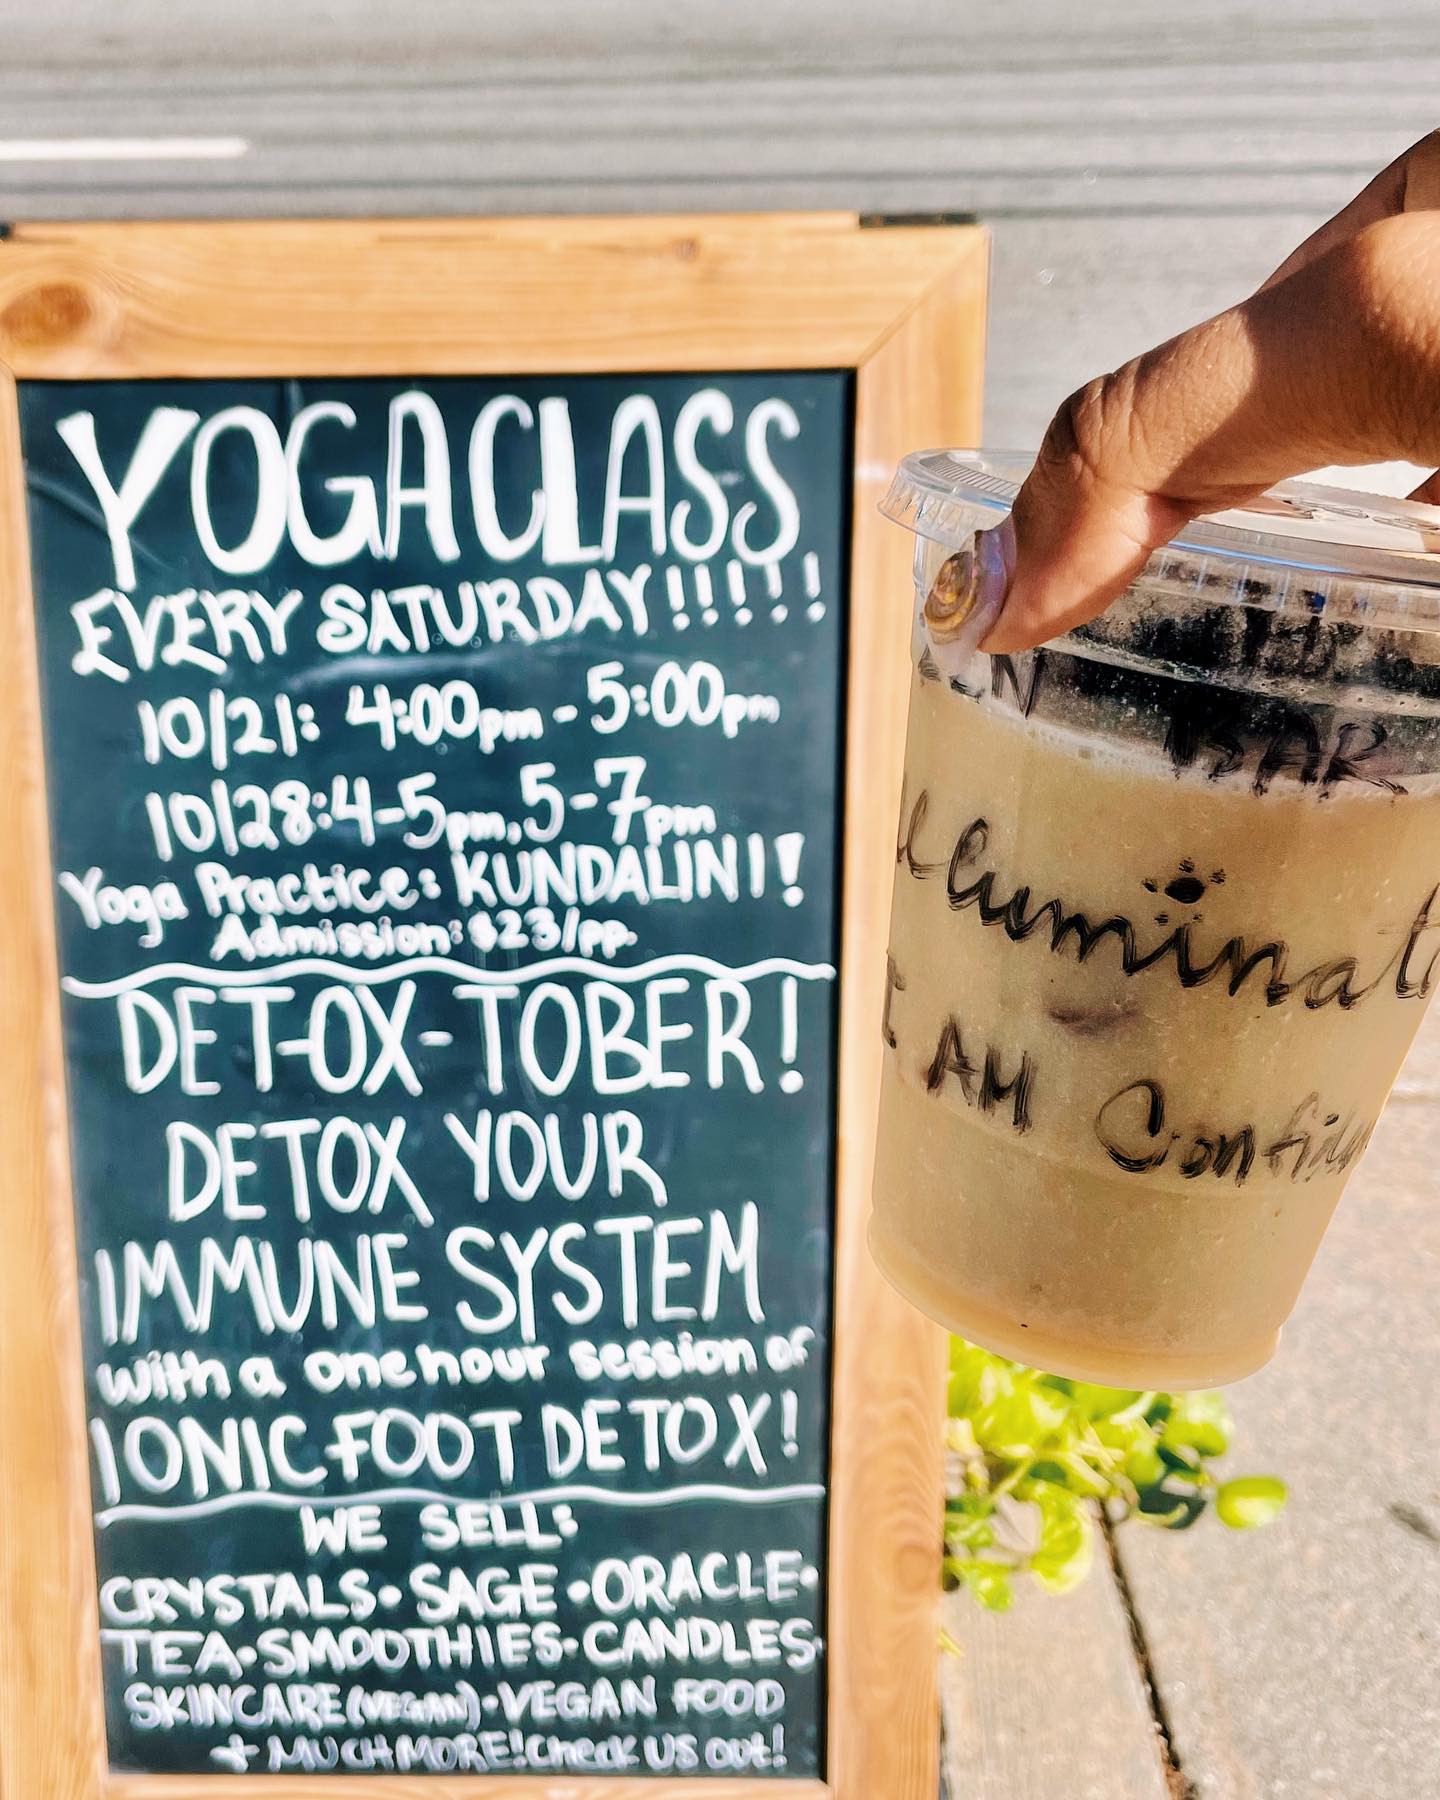 YOGA CLASS
EVERY SATURDAY!!!!!
10/21: 4:00pm - 5:00pm
10/28: 4-5pm, 5-7pm
Yoga Practice: KUNDALINI!
Admission: $23/pp.
DET-OX-TOBER!
DETOX YOUR
IMMUNE SYSTEM
with a one hour session of
IONIC FOOT DETOX!
WE SELL:
CRYSTALS • SAGE • ORACLE •
TEA • SMOOTHIES • CANDLES •
SKINCARE (VEGAN) • VEGAN FOOD
+ MUCH MORE! Check US out!
BAR
I AM